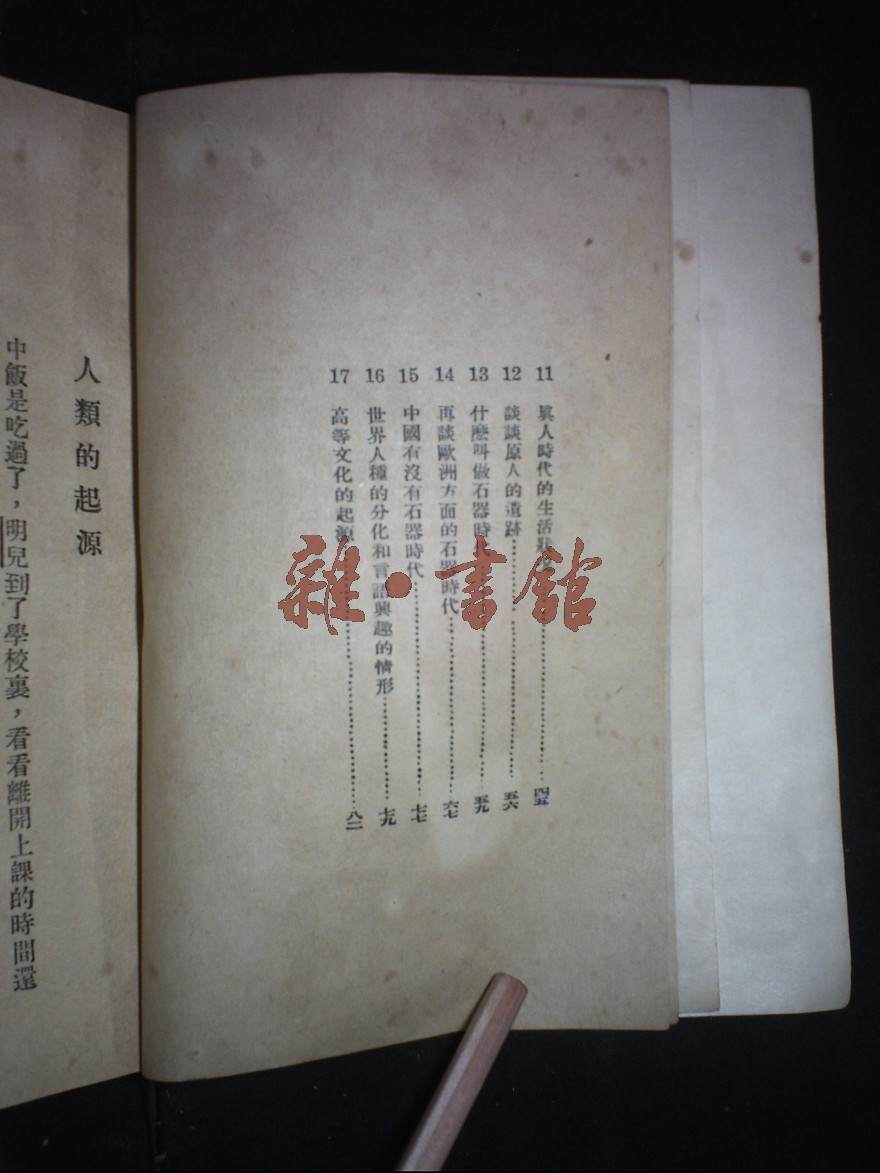 11 眞人時代的生活狀 四五
12 談談原人的遺跡 五六
13 什麽叫做石器時代 五九
14 再談歐洲方面的石器時代 六七
15 中國有沒有石器時代 七七
16 世界人種的分化和言語興趣的情形 七九
17 高等文化的起源 八二
人類的起源
中飯是吃過了，明兒到了學校裏，看看離開上課的時間還
雜·書館